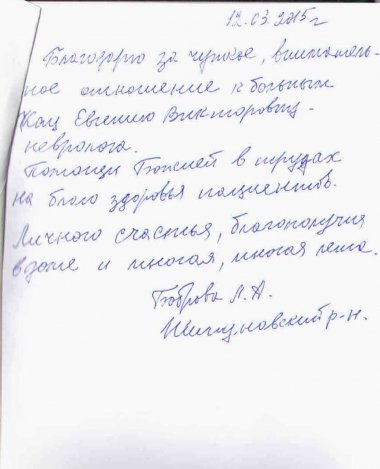 12.03.2015 г
Благодарю за чуткое, вниматель-
ное отношение к больным
Кац Евгению Викторовну -
невролога.
Помощи Божией в трудах
на благо здоровья пациентов.
Личного счастья, благополучия
в доме и многая, многая лета.
Боброва Л. А.
р-н.